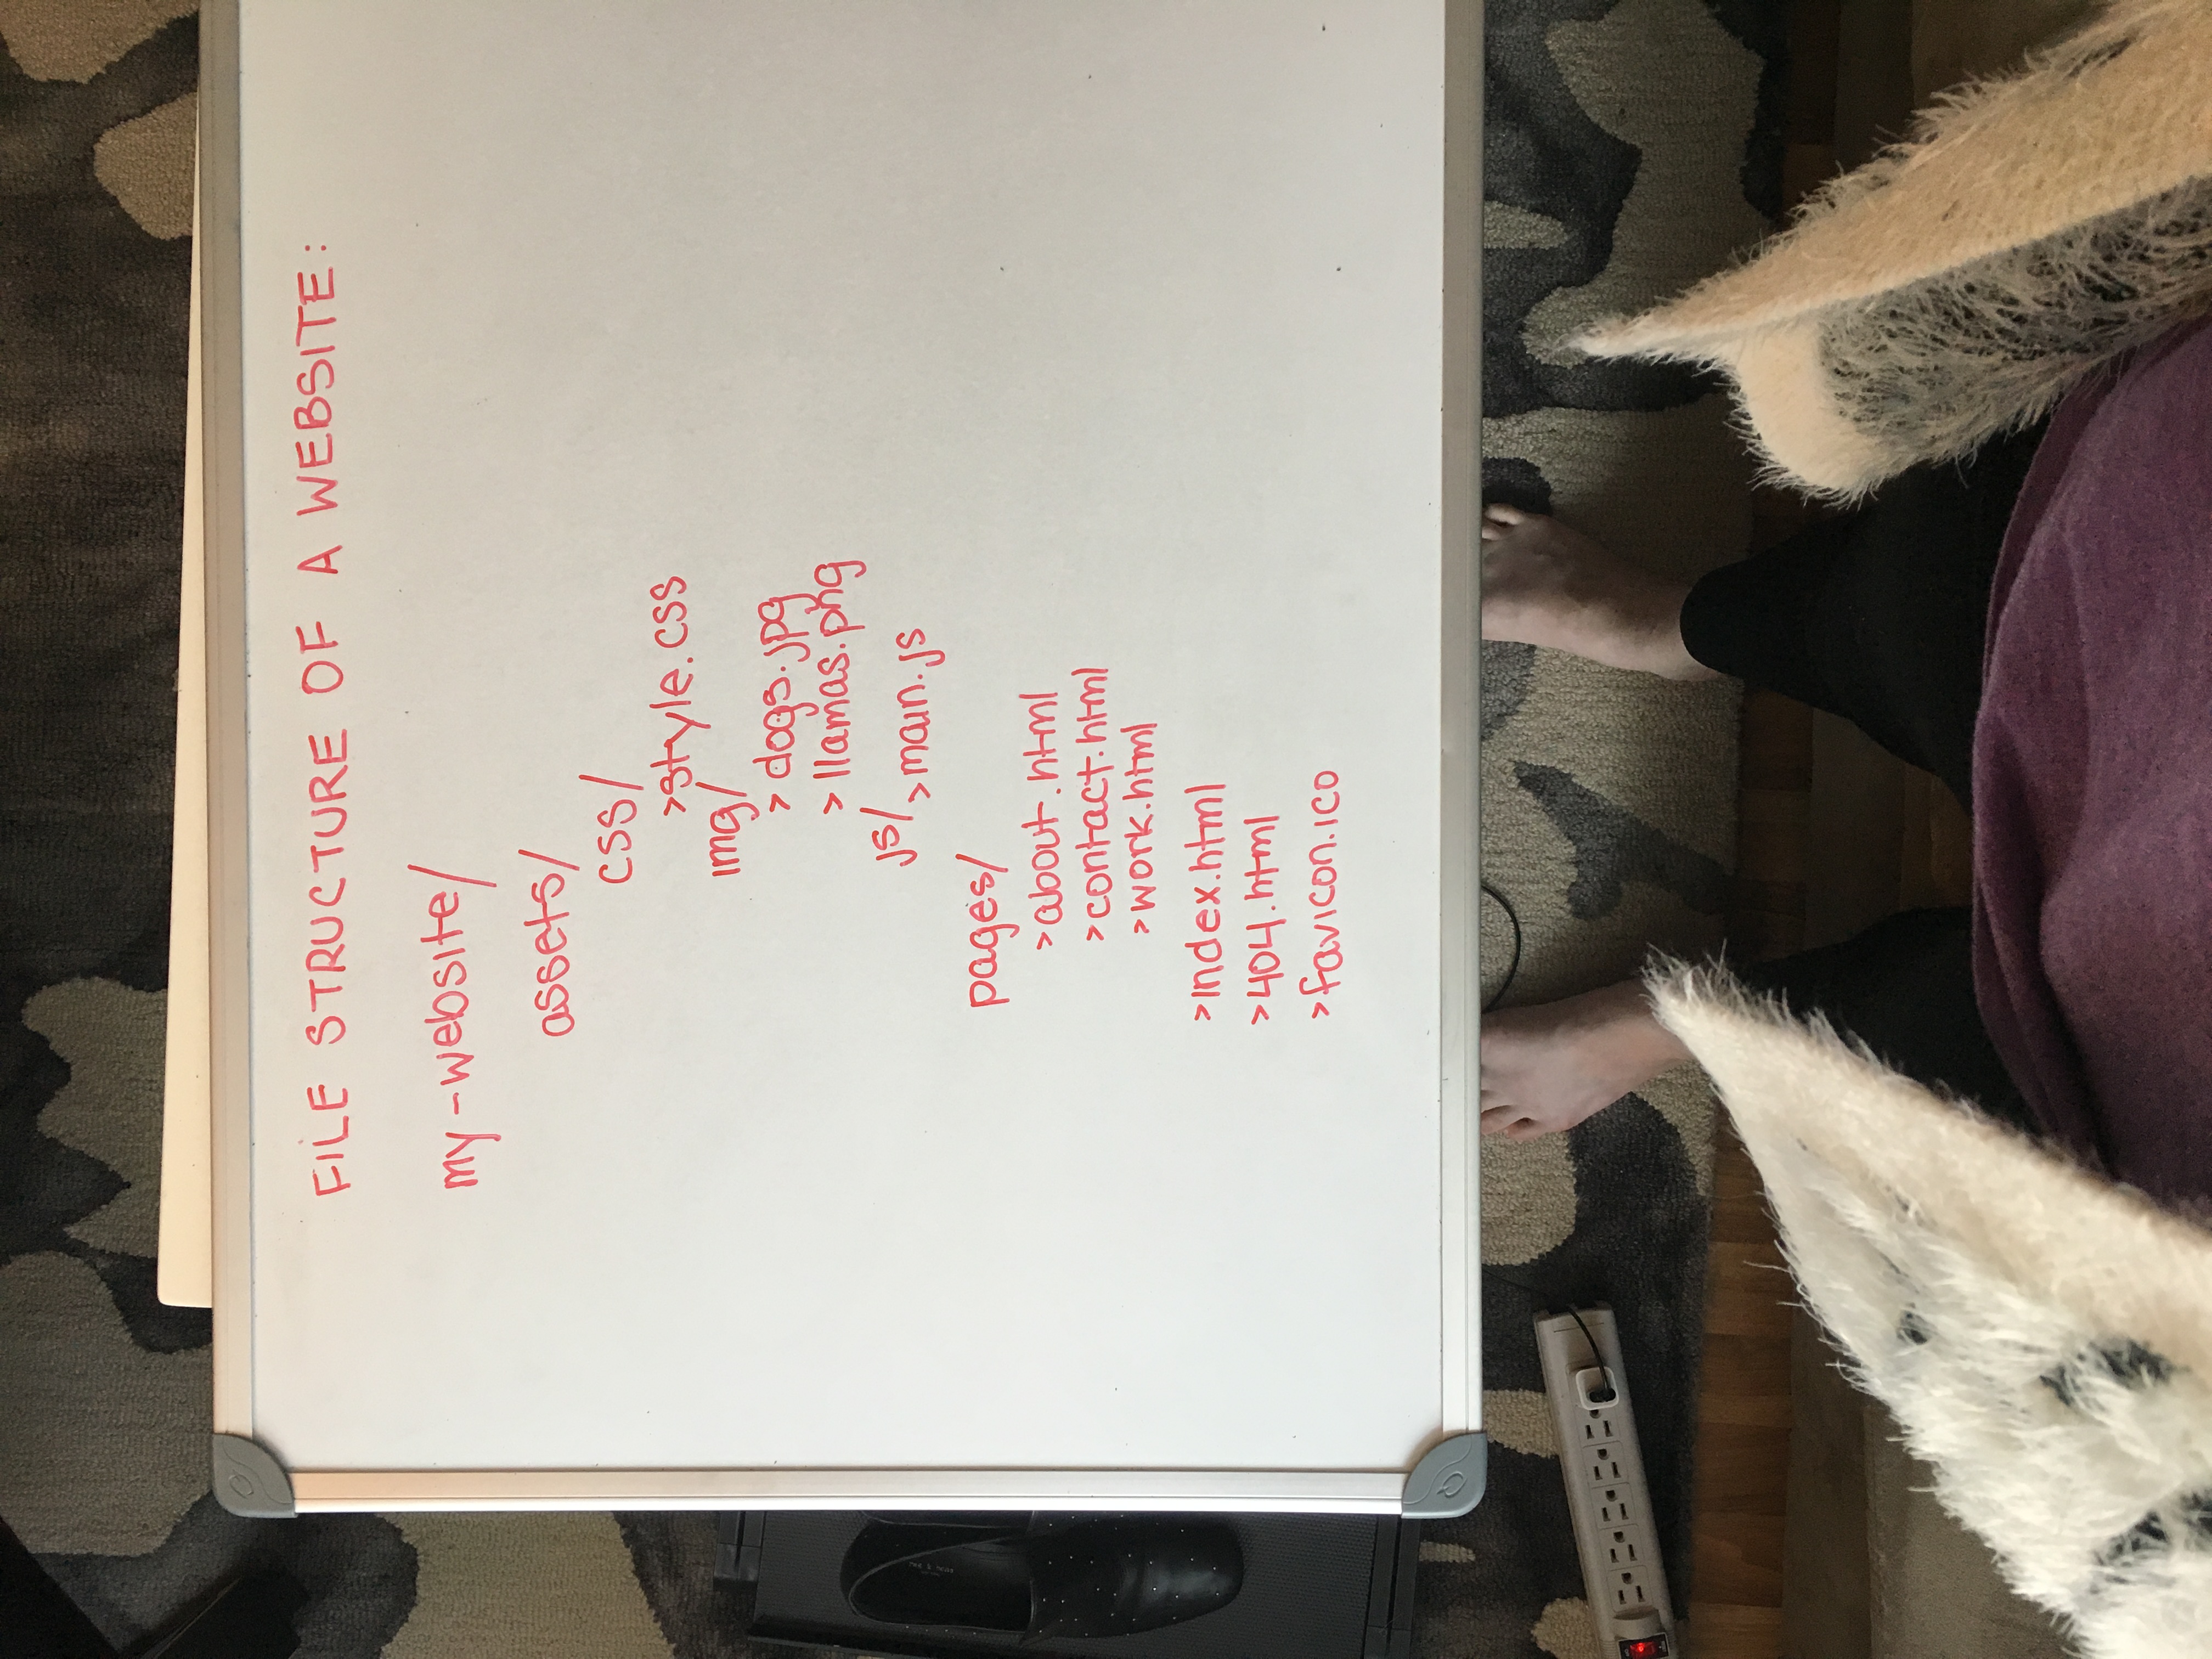 FILE STRUCTURE OF A WEBSITE:
my-website/
assets/
css/
>style.css
img/
> dogs.jpg
> llamas.png
js/
>main.js
pages/
>about.html
>contact.html
>work.html
>index.html
>404.html
>favicon.ico